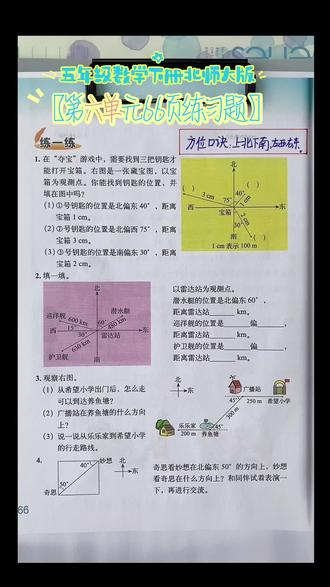 五年级数学下册北师大版
【第六单元66页练习题】
练一练
方位口诀:上北下南,左西右东。
1. 在“夺宝”游戏中，需要找到三把钥匙才
能打开宝箱。右图是一张藏宝图，以宝
箱为观测点。你能找到钥匙的位置，并
填在图中吗？
(1) ①号钥匙的位置是北偏东 40°，距离
宝箱 1 cm。
(2) ②号钥匙的位置是北偏西 75°，距离
宝箱 3 cm。
(3) ③号钥匙的位置是南偏东 30°，距离
宝箱 2 cm。
北
( )
( )
3 cm
75°
40°
1 cm
西
东
宝箱
30°
2 cm
( )
南
1 cm 表示 100 m
2. 填一填。
北
潜水艇
巡洋舰
600 km
60°
480 km
西
15°
东
30°
630 km
护卫舰
南
以雷达站为观测点。
潜水艇的位置是北偏东 60°，
距离雷达站 km。
巡洋舰的位置是 偏 ，
距离雷达站 km。
护卫舰的位置是 偏 ，
距离雷达站 km。
3. 观察右图。
(1) 从希望小学出门后，怎么走
可以到达养鱼塘？
(2) 广播站在养鱼塘的什么方向
上？
(3) 说一说从乐乐家到希望小学
的行走路线。
北
东
广播站
45°
250 m
希望小学
300 m
乐乐家
45°
200 m
养鱼塘
4.
妙想
北
40°
东
50°
奇思
奇思看妙想在北偏东 50° 的方向上，妙想
看奇思在什么方向上？和同伴试着表演一
下，再进行交流。
66